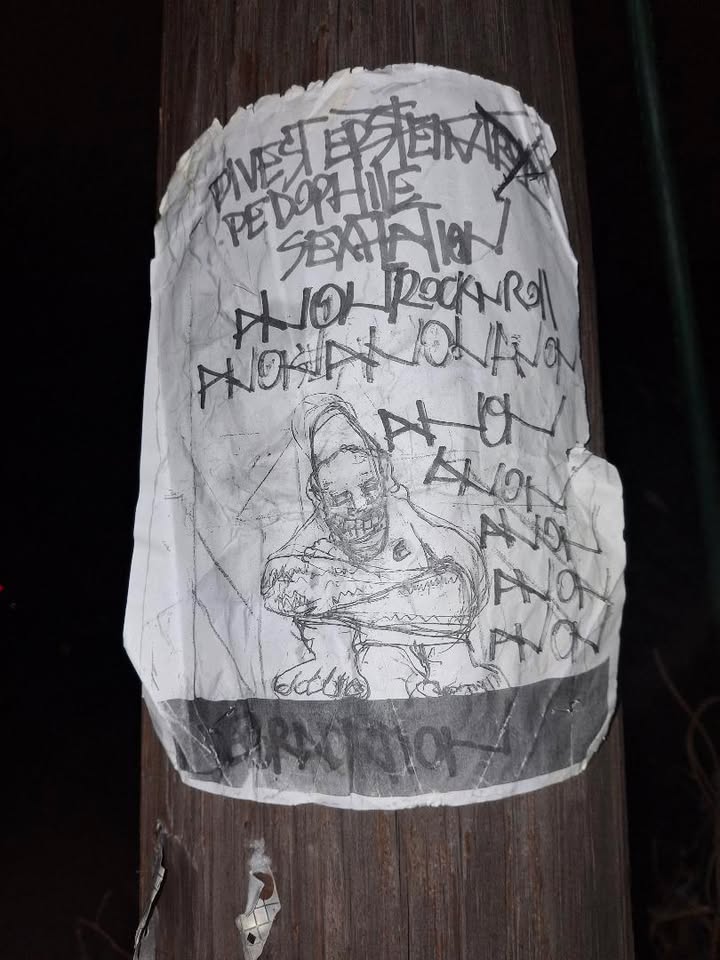 DIVEST EPSTEIN
PEDOPHILE
SEXTATION
ANON ROCKNROLL
ANON ANON ANON
ANON
ANON
ANON
ANON
ANON